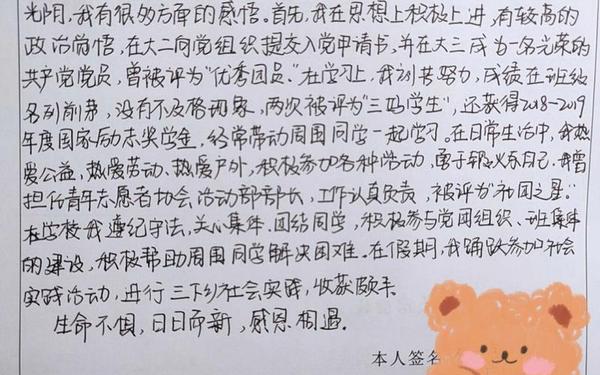 光阴,我有很多方面的感悟。首先,我在思想上积极上进,有较高的
政治觉悟,在大二向党组织提交入党申请书,并在大三成为一名光荣的
共产党党员,曾被评为"优秀团员。"在学习上,我刻苦努力,成绩在班级
名列前茅,没有不及格现象,两次被评为"三好学生",还获得2018-2019
年度国家励志奖学金,经常带动周围同学一起学习。在日常生活中,我热
爱公益,热爱劳动、热爱户外,积极参加各种活动,勇于锻炼自己,我曾
担任青年志愿者协会活动部部长,工作认真负责,被评为"社团之星"。
在学校我遵纪守法,关心集体,团结同学,积极参与党团组织、班集体
的建设,积极帮助周围同学解决困难。在假期,我踊跃参加社会
实践活动,进行三下乡社会实践,收获颇丰
生命不惧,日日而新,感恩相遇。
本人签名